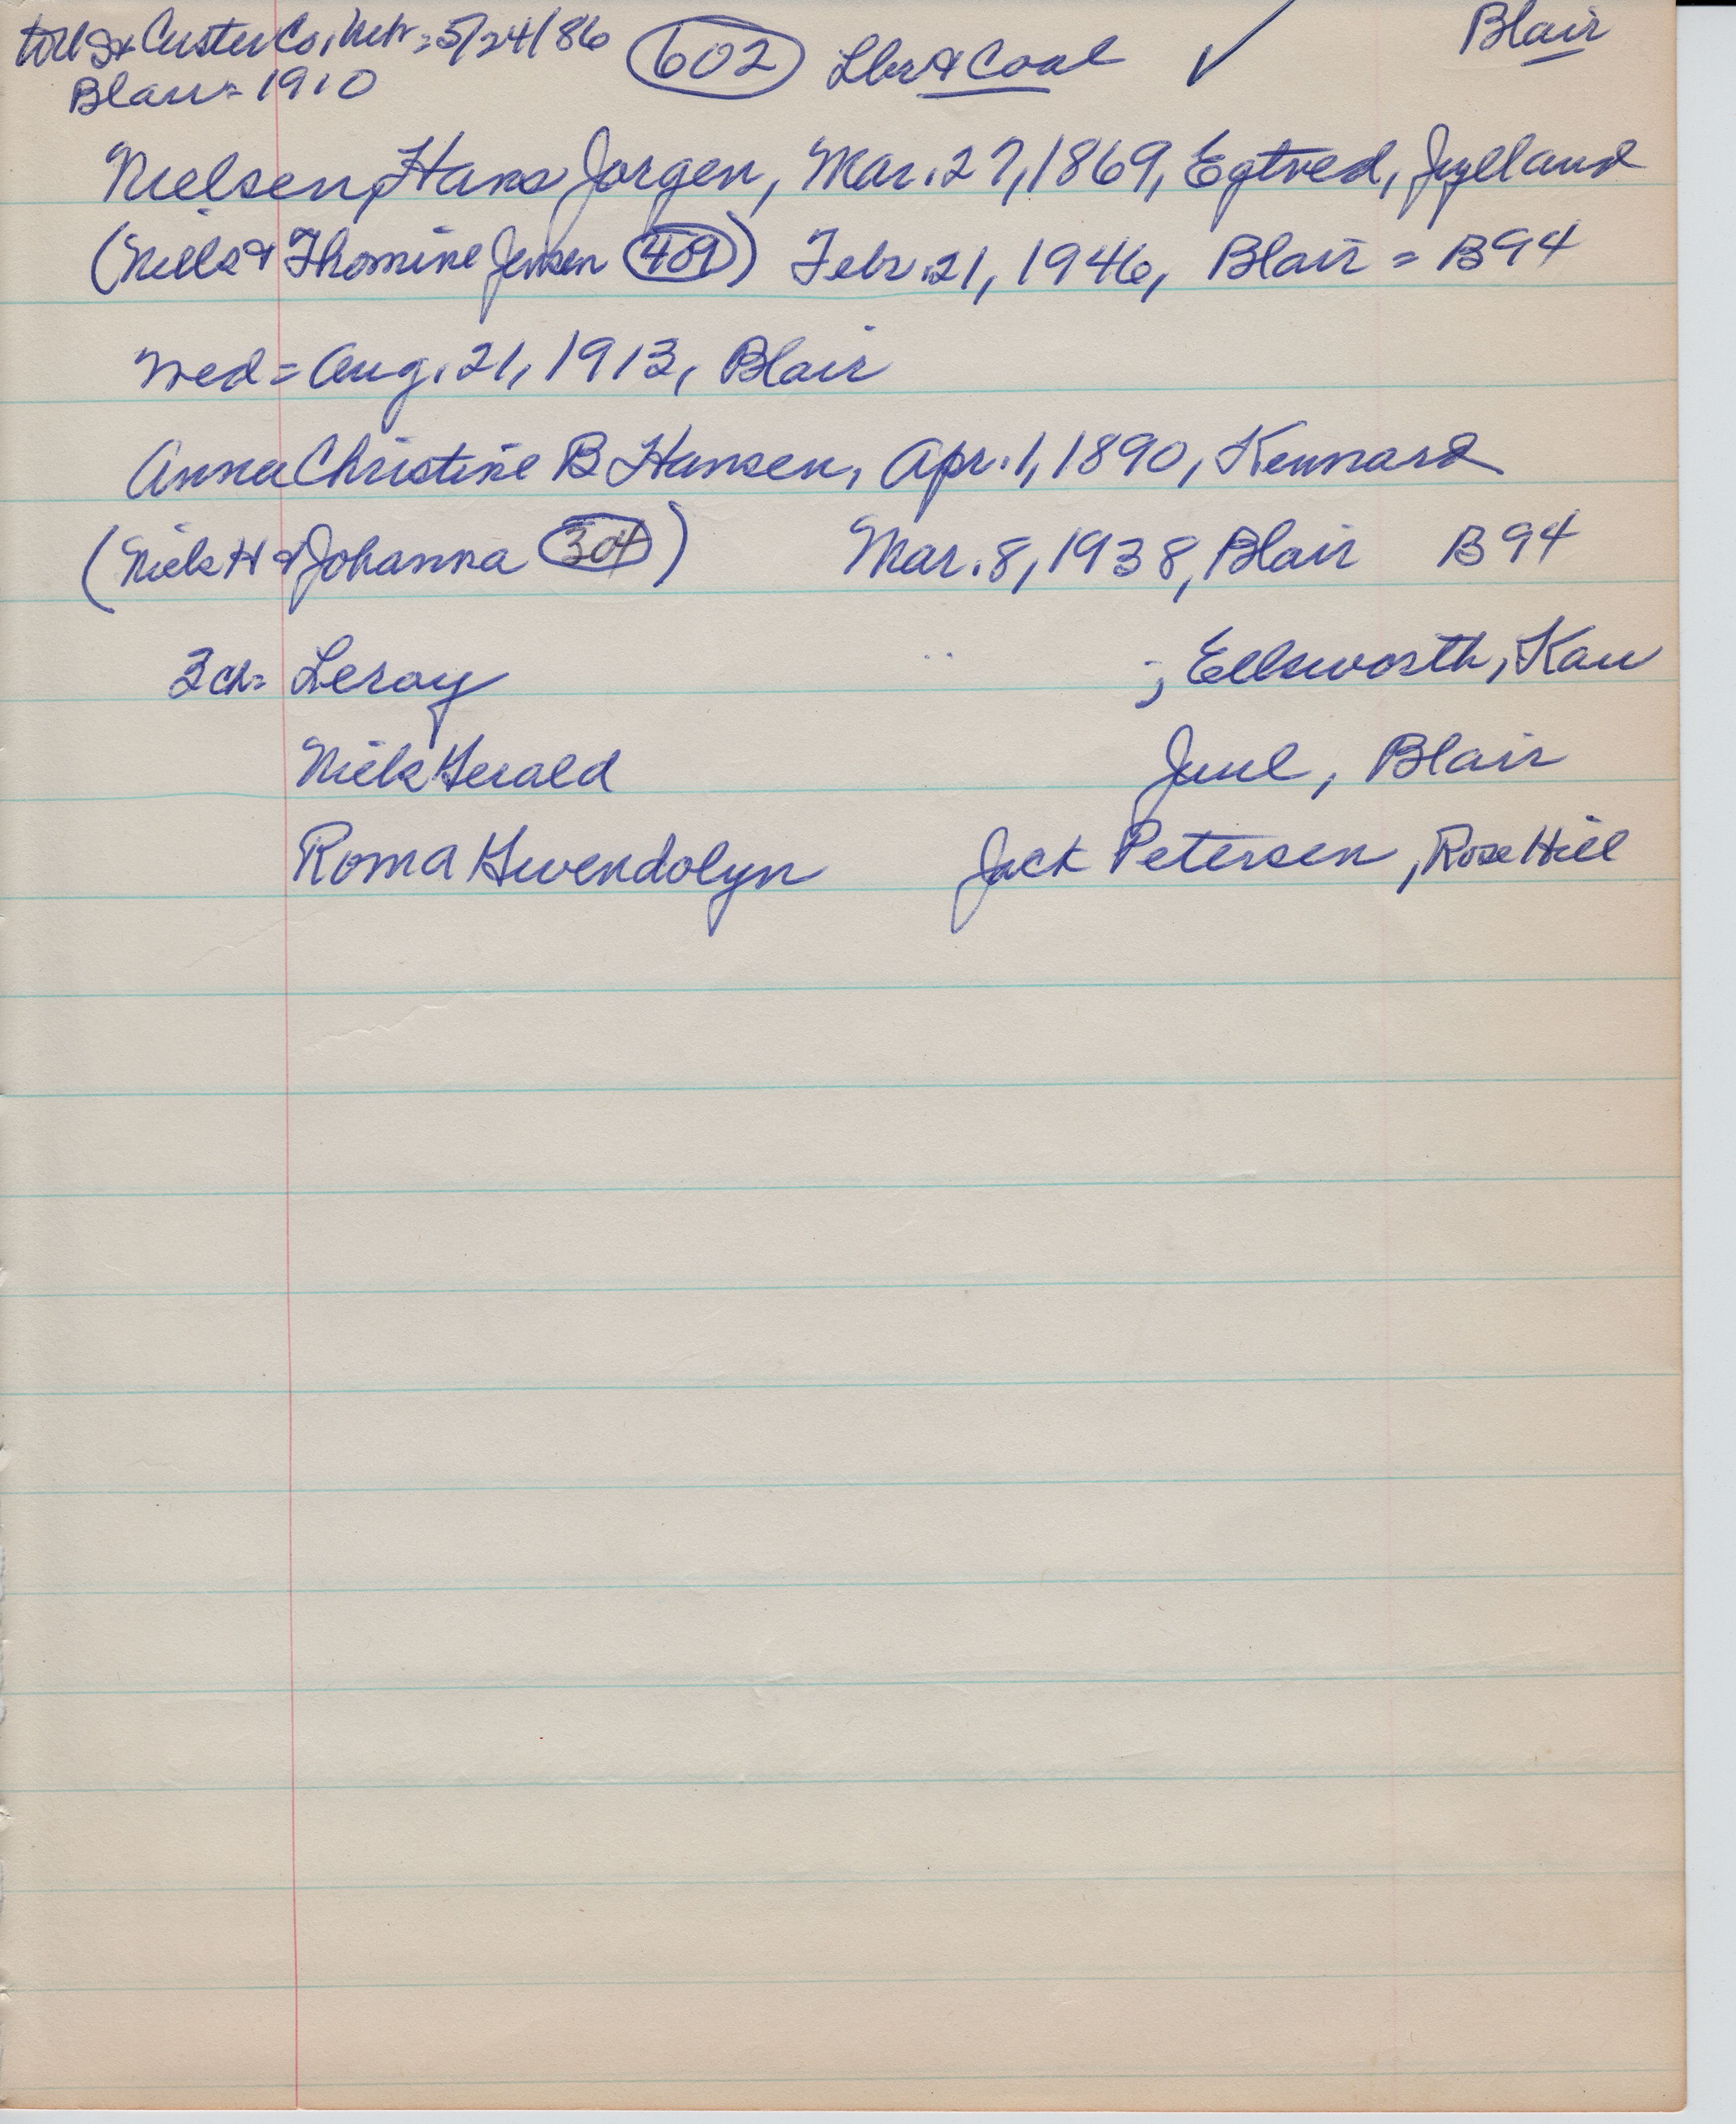 to US & Custer Co, Nebr = 5/24/86 602 Lbr & Coal ✓ Blair
Blair = 1910
Nielsen, Hans Jorgen, Mar. 27, 1869, Egtved, Jylland
(Niels & Thomine Jensen 409) Febr. 21, 1946, Blair = B94
Wed = Aug. 21, 1913, Blair
Anna Christine B Hansen, Apr. 1, 1890, Kennard
(Niels H & Johanna 304) Mar. 8, 1938, Blair B94
3 ch = Leroy ; Ellsworth, Kan
Niels Gerald Juul, Blair
Roma Gwendolyn Jack Petersen, Rose Hill